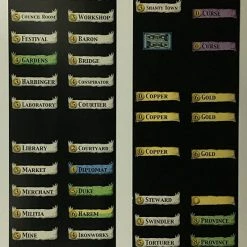 COUNCIL ROOM
WORKSHOP
FESTIVAL
BARON
GARDENS
BRIDGE
HARBINGER
CONSPIRATOR
LABORATORY
COURTIER
LIBRARY
COURTYARD
MARKET
DIPLOMAT
MERCHANT
DUKE
MILITIA
HAREM
MINE
IRONWORKS
SHANTY TOWN
CURSE
CURSE
COPPER
GOLD
COPPER
GOLD
COPPER
GOLD
STEWARD
SWINDLER
PROVINCE
TORTURER
PROVINCE